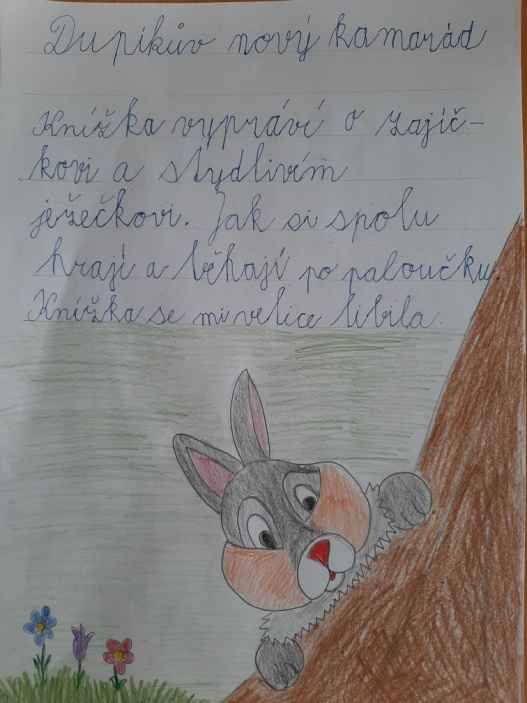 Dupíkův nový kamarád
Knížka vypráví o zajíč-
kovi a stydlivím
ježečkovi. Jak si spolu
hrají a běhají po paloučku.
Knížka se mi velice líbila.